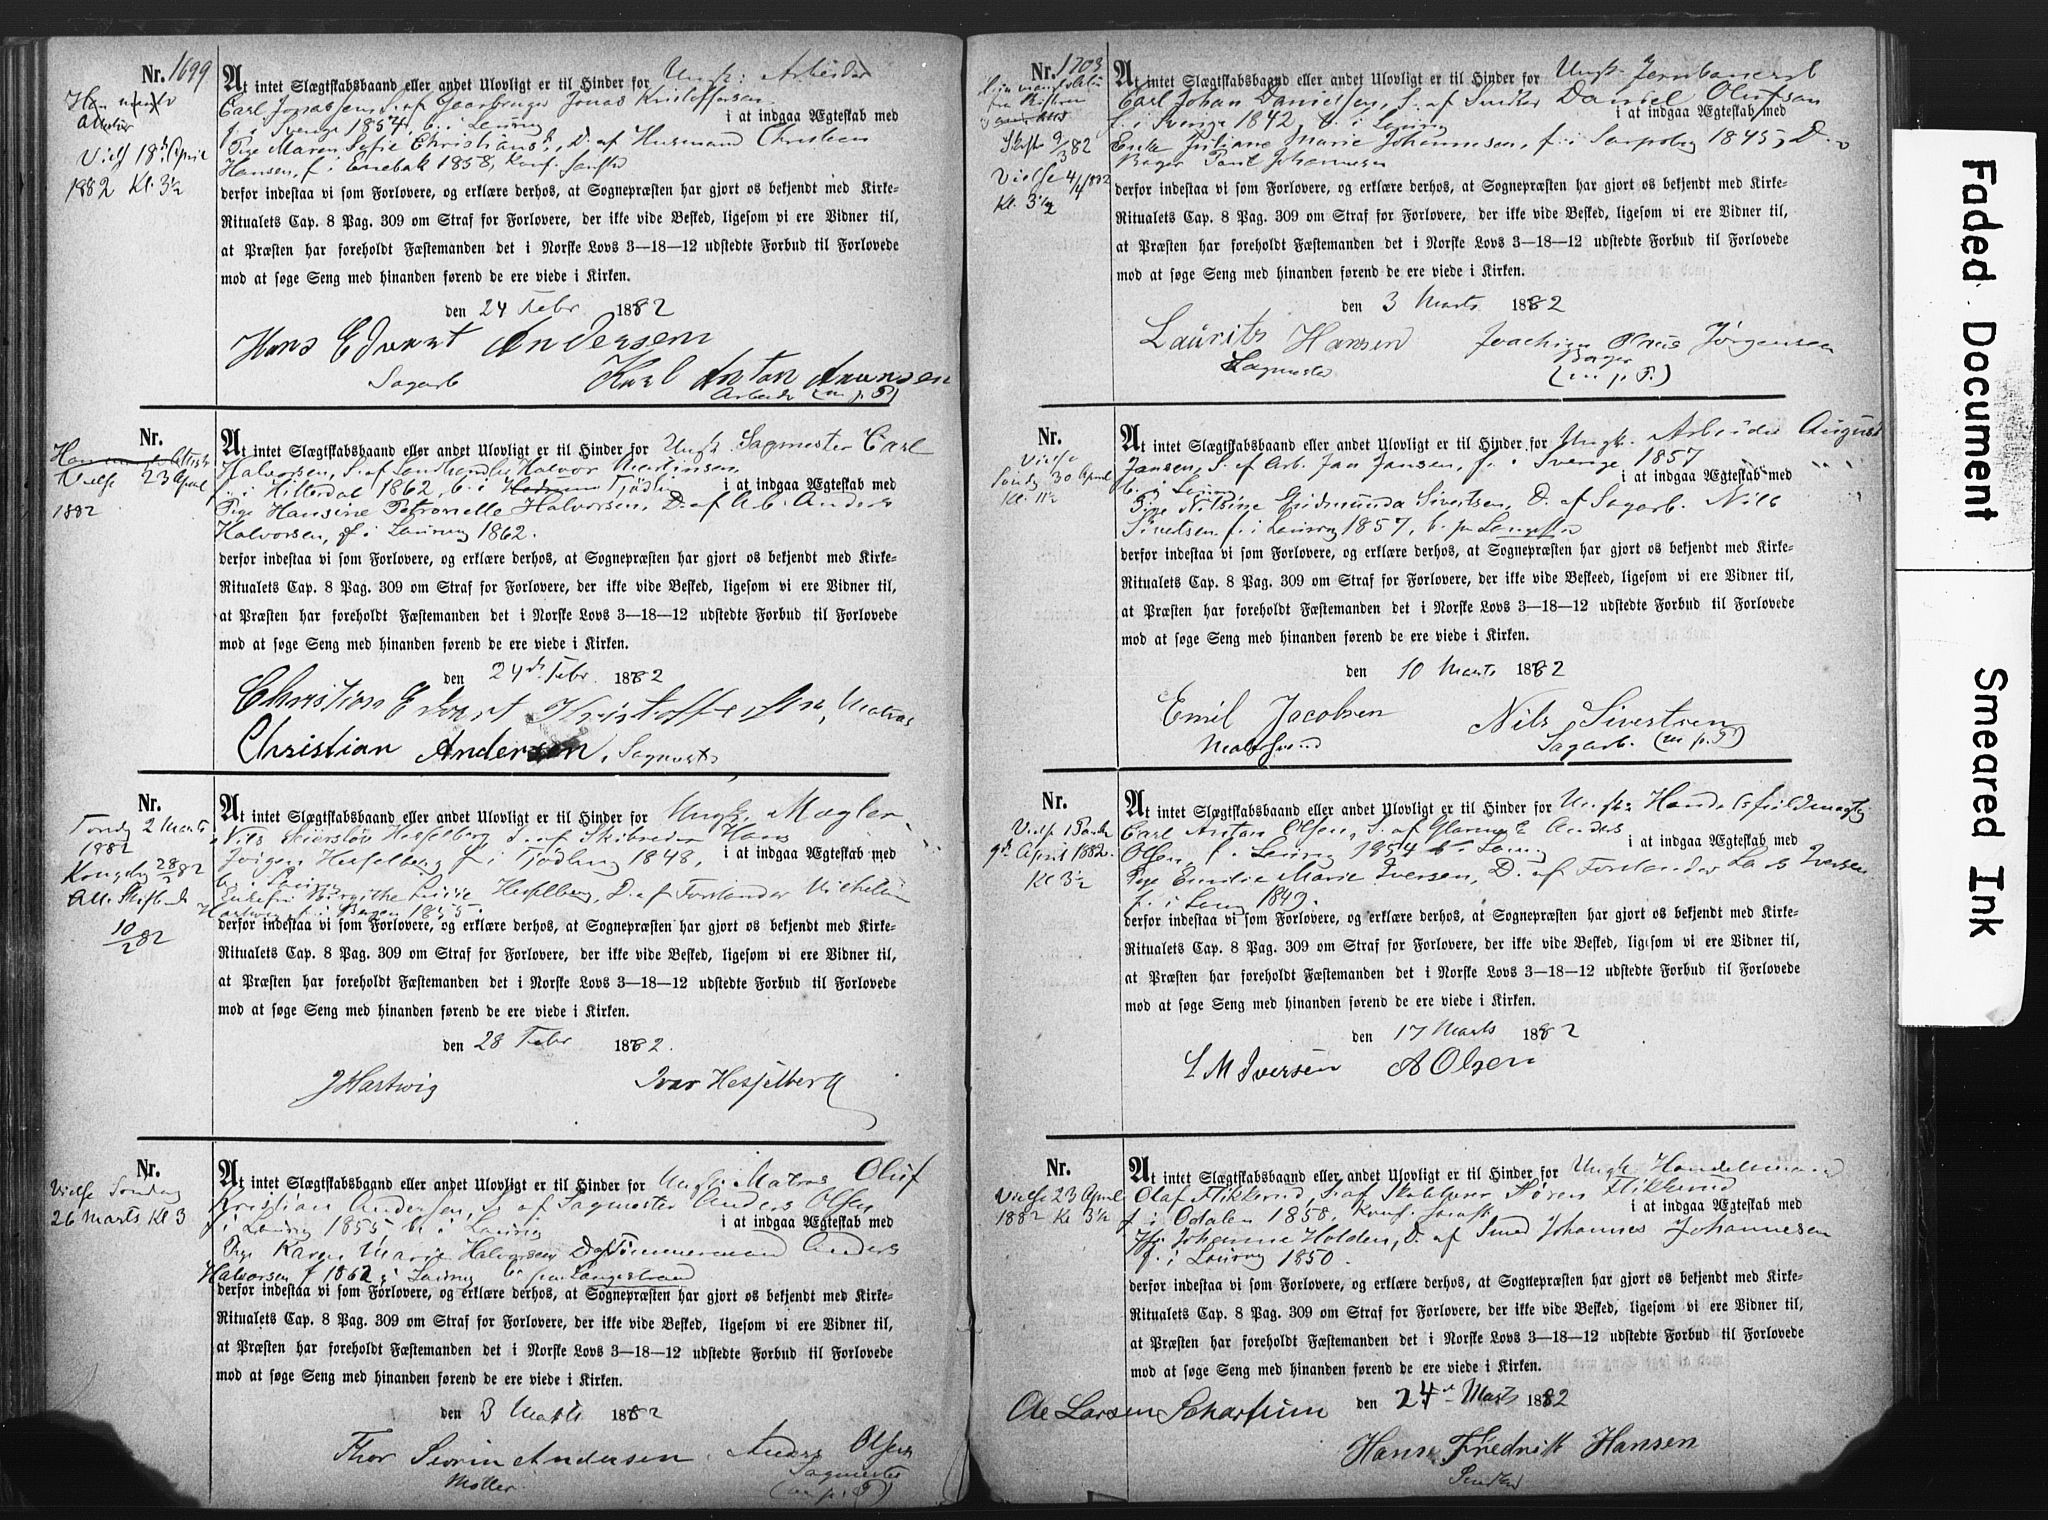 Nr. 1699
At intet Slægtskabsbaand eller andet Ulovligt er til Hinder for Ungk. Arbeider
Carl Jonassen, S. af Gaardbruger Jonas Kristoffersen
f. i Sverige 1854, b. i Laurvig i at indgaa Ægteskab med
Pige Maren Sofie Christians., D. af Husmand Christian
Hansen, f. i Enebak 1858, Konf.
derfor indestaa vi som Forlovere, og erklære derhos, at Sognepræsten har gjort os bekjendt med Kirke-
Ritualets Cap. 8 Pag. 309 om Straf for Forlovere, der ikke vide Besked, ligesom vi ere Vidner til,
at Præsten har foreholdt Fæstemanden det i Norske Lovs 3—18—12 udstedte Forbud til Forlovede
mod at søge Seng med hinanden førend de ere viede i Kirken.
den 24 Febr 1882
Hans Edvart Andersen
Sagarb
Karl Anton Amundsen
Arbeider (m. p. P)
Vielse 18de April
1882 Kl. 3½
Nr.
At intet Slægtskabsbaand eller andet Ulovligt er til Hinder for Ungk. Sagmester Carl
Halvorsen, S. af Landhandler Halvor Martinsen
f. i Hitterdal 1862, b. i Tjølling i at indgaa Ægteskab med
Pige Hansine Petronelle Halvorsen, D. af Arb. Anders
Halvorsen, f. i Laurvig 1862.
derfor indestaa vi som Forlovere, og erklære derhos, at Sognepræsten har gjort os bekjendt med Kirke-
Ritualets Cap. 8 Pag. 309 om Straf for Forlovere, der ikke vide Besked, ligesom vi ere Vidner til,
at Præsten har foreholdt Fæstemanden det i Norske Lovs 3—18—12 udstedte Forbud til Forlovede
mod at søge Seng med hinanden førend de ere viede i Kirken.
den 24de Febr. 1882
Christian Edvart Kristoffersen, Matros
Christian Andersen, Sagmester
Vielse 23 April
1882
Nr.
At intet Slægtskabsbaand eller andet Ulovligt er til Hinder for Ungk. Mægler
Nils Hesselberg S. af Skibsreder Hans
Jørgen Hesselberg f. i Tjødling 1848, i at indgaa Ægteskab med
b. i Laurvig
Enkefru Birgithe Hesselberg, D. af Forstander Vilhelm
Hartwig, f. i Bergen 1855.
derfor indestaa vi som Forlovere, og erklære derhos, at Sognepræsten har gjort os bekjendt med Kirke-
Ritualets Cap. 8 Pag. 309 om Straf for Forlovere, der ikke vide Besked, ligesom vi ere Vidner til,
at Præsten har foreholdt Fæstemanden det i Norske Lovs 3—18—12 udstedte Forbud til Forlovede
mod at søge Seng med hinanden førend de ere viede i Kirken.
den 28 Febr 1882.
J Hartwig Ivar Hesselberg
Torsdg 2 Marts
1882
Kongebr 28/2 82
10/2 82
Nr.
At intet Slægtskabsbaand eller andet Ulovligt er til Hinder for Ungk. Matros Oluf
Kristian Andersen, S. af Sagmester Anders Olsen
f. i Laurvig 1855 b. i Laurvig i at indgaa Ægteskab med
Pige Karen Marie Halvorsen D. af Tømmermand Anders
Halvorsen f. 1862 i Laurvig b. paa Langestrand
derfor indestaa vi som Forlovere, og erklære derhos, at Sognepræsten har gjort os bekjendt med Kirke-
Ritualets Cap. 8 Pag. 309 om Straf for Forlovere, der ikke vide Besked, ligesom vi ere Vidner til,
at Præsten har foreholdt Fæstemanden det i Norske Lovs 3—18—12 udstedte Forbud til Forlovede
mod at søge Seng med hinanden førend de ere viede i Kirken.
den 3 Marts 1882
Thor Severin Andersen
Møller
Anders Olsen
Sagmester
(m. p. P)
Vielse Søndag
26 Marts Kl 3
Nr. 1703
At intet Slægtskabsbaand eller andet Ulovligt er til Hinder for Ungk. Jernbanearb
Carl Johan Danielsen, S. af Snedker Daniel Olufsen
f. i Sverige 1842, b. i Laurvig i at indgaa Ægteskab med
Enke Juliane Marie Johannesen, f. i Sarpsborg 1845, D. a
Bager Johannesen
derfor indestaa vi som Forlovere, og erklære derhos, at Sognepræsten har gjort os bekjendt med Kirke-
Ritualets Cap. 8 Pag. 309 om Straf for Forlovere, der ikke vide Besked, ligesom vi ere Vidner til,
at Præsten har foreholdt Fæstemanden det i Norske Lovs 3—18—12 udstedte Forbud til Forlovede
mod at søge Seng med hinanden førend de ere viede i Kirken.
den 3 Marts 1882
Laurits Hansen
Sagmester
Joachim Claus Jørgensen
Bager
(m p. P.)
9/3 82
Vielse 4/4 1882
Kl. 3½
Nr.
At intet Slægtskabsbaand eller andet Ulovligt er til Hinder for Ungk. Arbeider August
Jansen, S. af Arb. Jan Jansen, f. i Sverige 1857 i at indgaa Ægteskab med
b. i Laurvig
Pige Nilsine Gudmunda Sivertsen, D. af Sagarb. Nils
Sivertsen f. i Laurvig 1857, b. pa Langestrd
derfor indestaa vi som Forlovere, og erklære derhos, at Sognepræsten har gjort os bekjendt med Kirke-
Ritualets Cap. 8 Pag. 309 om Straf for Forlovere, der ikke vide Beskeed, ligesom vi ere Vidner til,
at Præsten har foreholdt Fæstemanden det i Norske Lovs 3—18—12 udstedte Forbud til Forlovede
mod at søge Seng med hinanden førend de ere viede i Kirken.
den 10 Marts 1882
Emil Jacobsen
Matrosmd
Nils Sivertsen
Sagarb. (m. p. P)
Vielse
Søndg 30 April
Kl. 11½
Nr.
At intet Slægtskabsbaand eller andet Ulovligt er til Hinder for Ungk. Handelsfuldmægtig
Carl Anton Olsen, S. af Glarm. E Anders
Olsen, f. i Laurvig 1854 b. i Laurvig i at indgaa Ægteskab med
Pige Emilie Marie Iversen, D. af Forstander Lars Iversen
f. i Laurvig 1849.
derfor indestaa vi som Forlovere, og erklære derhos, at Sognepræsten har gjort os bekjendt med Kirke-
Ritualets Cap. 8 Pag. 309 om Straf for Forlovere, der ikke vide Besked, ligesom vi ere Vidner til,
at Præsten har foreholdt Fæstemanden det i Norske Lovs 3—18—12 udstedte Forbud til Forlovede
mod at søge Seng med hinanden førend de ere viede i Kirken.
den 17 Marts 1882
L M Iversen A Olsen
Vielse 1 Paaske
9de April 1882.
Kl 3½
Nr.
At intet Slægtskabsbaand eller andet Ulovligt er til Hinder for Ungk Handelsmand
Olaf Flikkerud, S. af Skolelærer Søren Flikkerud
f. i Odalen 1858, Konf. i at indgaa Ægteskab med
Johanne Holden, D. af Smed Johannes Johannesen
f. i Laurvig 1850.
derfor indestaa vi som Forlovere, og erklære derhos, at Sognepræsten har gjort os bekjendt med Kirke-
Ritualets Cap. 8 Pag. 309 om Straf for Forlovere, der ikke vide Besked, ligesom vi ere Vidner til,
at Præsten har foreholdt Fæstemanden det i Norske Lovs 3—18—12 udstedte Forbud til Forlovede
mod at søge Seng med hinanden førend de ere viede i Kirken.
den 24de Marts 1882
Ole Larsen Schartum
Hans Fredrik Hansen
Snedker
Vielse 23 April
1882 Kl 3½
Faded Document
Smeared Ink